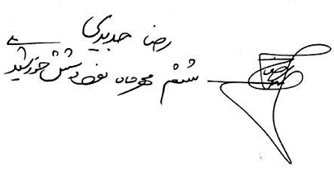 رضا
ششم مهرماه نود و شش خورشیدی